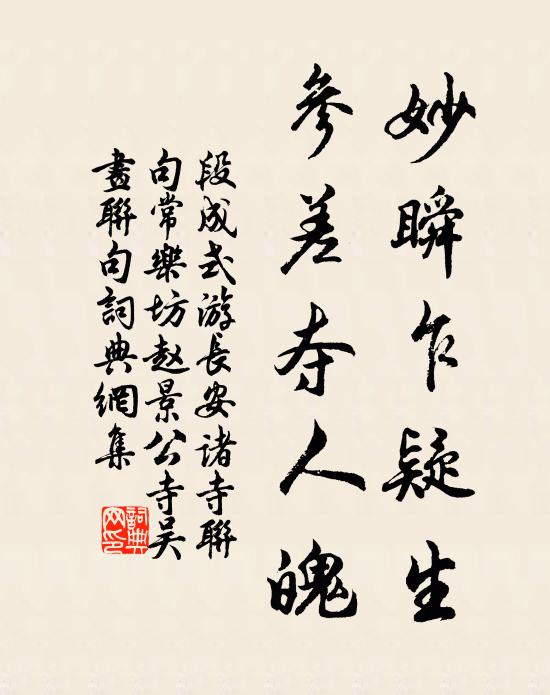 妙瞬乍疑生
參差夺人魄
段成式游長安诸寺聯
句常樂坊赵景公寺吴
畫聯句詞典網集
詞典
网印